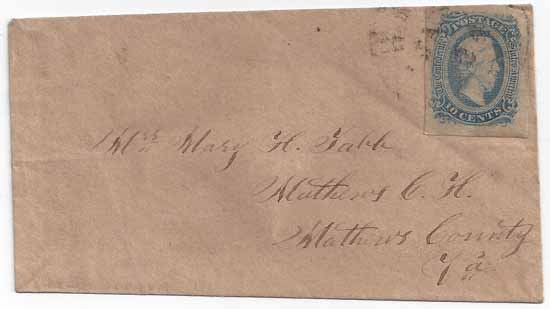 POSTAGE
The Confederate States of America
10 CENTS
Mrs Mary H. Tabb
Mathews C. H.
Mathews County
Va